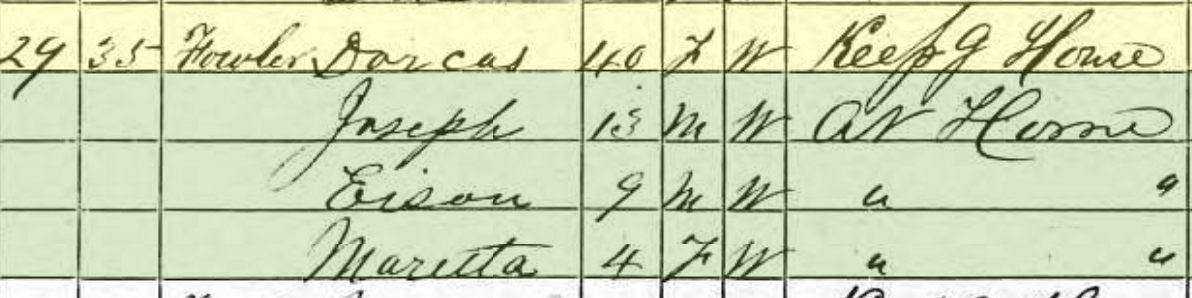 29 35 Fowler Dorcas 40 F W Keep'g House
Joseph 13 M W At Home
Eison 9 M W " "
Maretta 4 F W " "